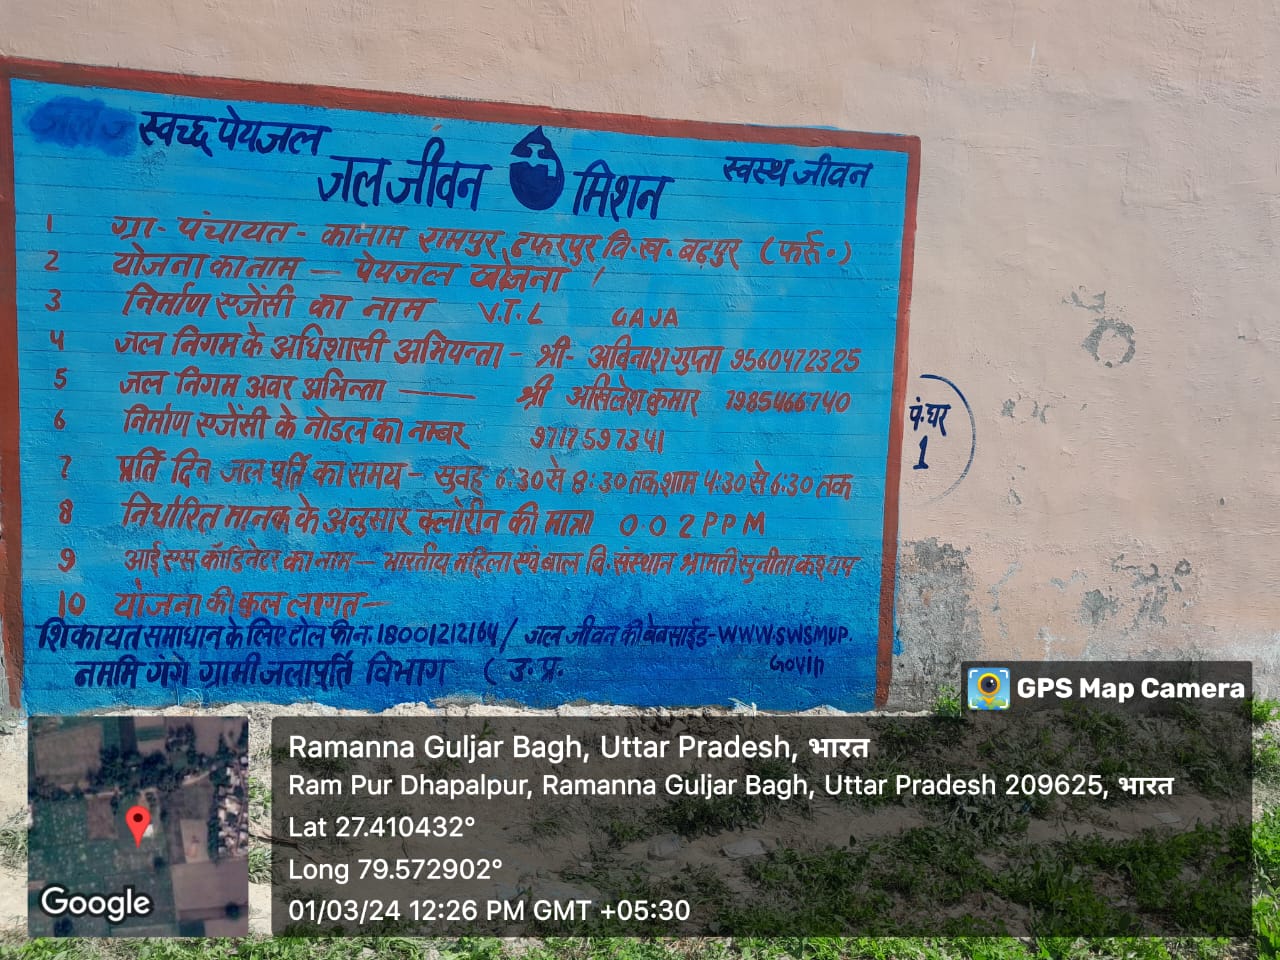 स्वच्छ पेयजल
जल जीवन मिशन
स्वस्थ जीवन
1 ग्रा- पंचायत - कानाम रामपुर, ढफरपुर वि.ख. बढ़पुर (फर्रु॰)
2 योजना का नाम — पेयजल योजना
3 निर्माण एजेंसी का नाम V.T.L GAJA
4 जल निगम के अधिशासी अभियन्ता - श्री- अविनाश गुप्ता 9560472325
5 जल निगम अवर अभिन्ता —— श्री अखिलेश कुमार 7985466740
6 निर्माण एजेंसी के नोडल का नम्बर 9717597341
7 प्रति दिन जल पूर्ति का समय - सुवह 6:30 से 8:30 तक शाम 4:30 से 6:30 तक
8 निर्धारित मानक के अनुसार क्लोरीन की मात्रा 0.02 PPM
9 आई एस कॉडिनेटर का नाम — भारतीय महिला एवं बाल वि. संस्थान श्रीमती सुनीता कश्यप
10 योजना की कुल लागत —
शिकायत समाधान के लिए टोल फ्री न. 18001212164 / जल जीवन की बेबसाईड - WWW.SWSMUP.
Govin
नमामि गंगे ग्रामी जलापूर्ति विभाग ( उ. प्र.
पं. घर
1
GPS Map Camera
Ramanna Guljar Bagh, Uttar Pradesh, भारत
Ram Pur Dhapalpur, Ramanna Guljar Bagh, Uttar Pradesh 209625, भारत
Lat 27.410432°
Long 79.572902°
01/03/24 12:26 PM GMT +05:30
Google